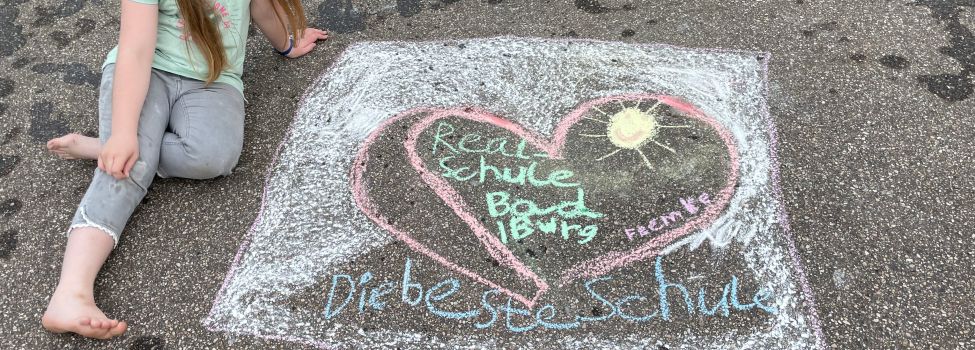 Real-
Schule
Bad
IBurg
FEEMKE
Die beste Schule